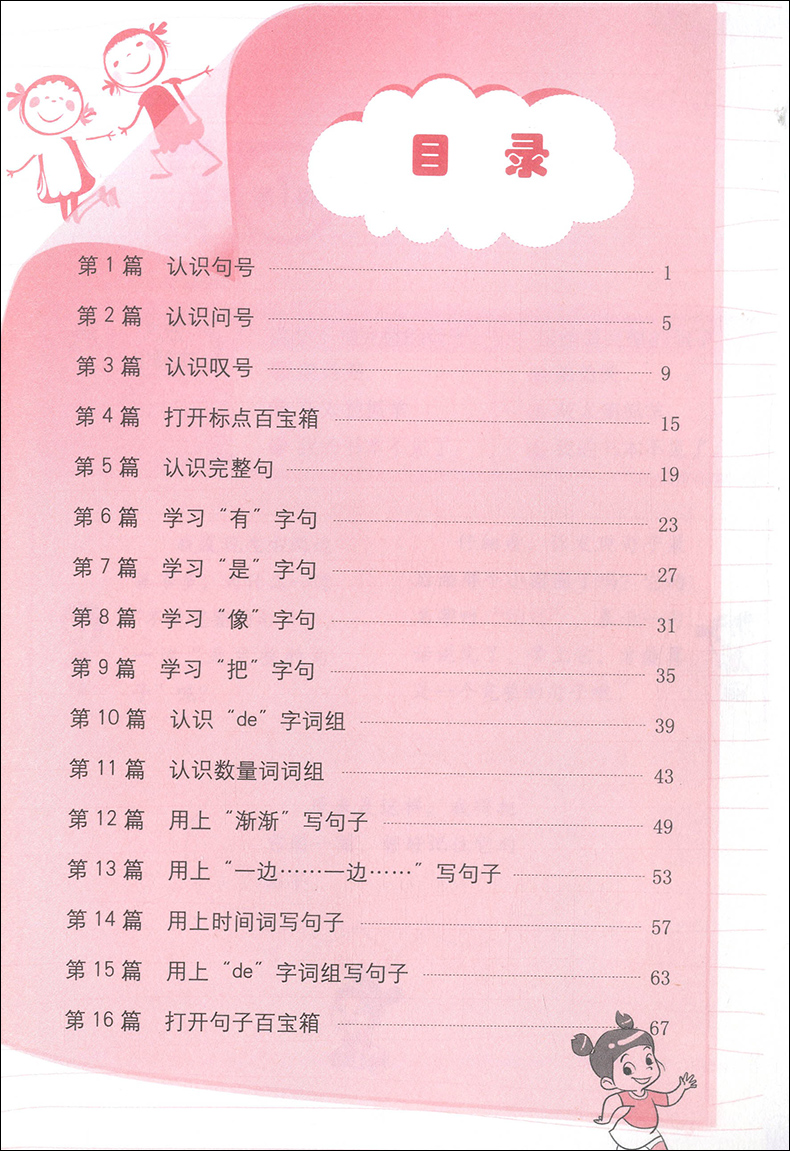 目 录
第1篇 认识句号 1
第2篇 认识问号 5
第3篇 认识叹号 9
第4篇 打开标点百宝箱 15
第5篇 认识完整句 19
第6篇 学习“有”字句 23
第7篇 学习“是”字句 27
第8篇 学习“像”字句 31
第9篇 学习“把”字句 35
第10篇 认识“de”字词组 39
第11篇 认识数量词词组 43
第12篇 用上“渐渐”写句子 49
第13篇 用上“一边……一边……”写句子 53
第14篇 用上时间词写句子 57
第15篇 用上“de”字词组写句子 63
第16篇 打开句子百宝箱 67